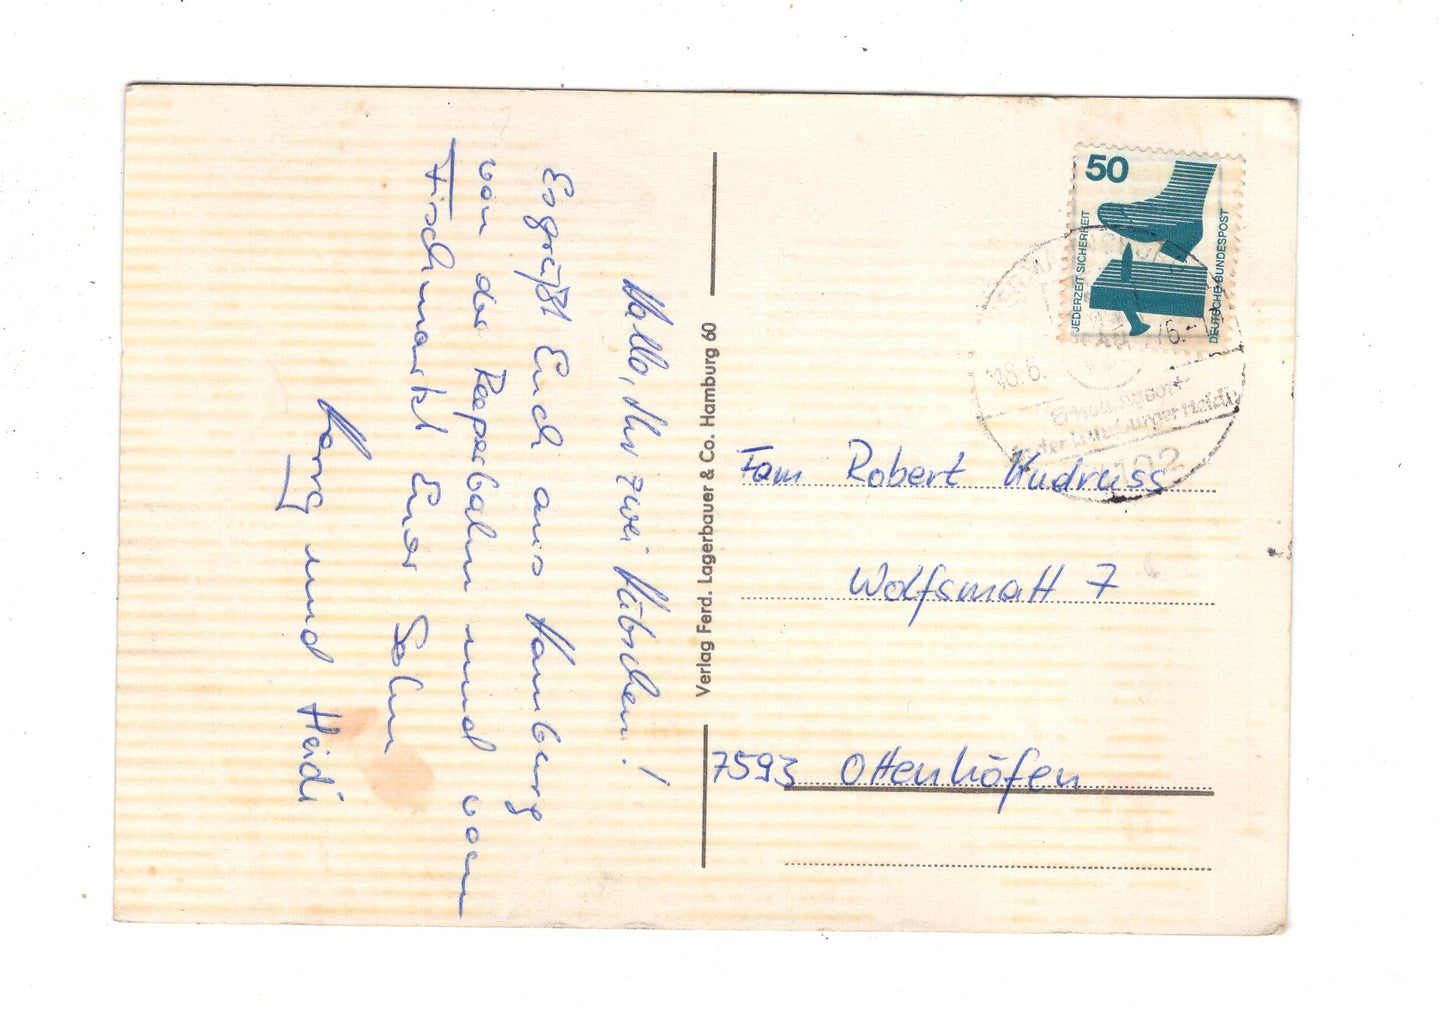 Hallo, Ihr zwei Hübschen!
Es grüßt Euch aus Hamburg
von der Reeperbahn und vom
Fischmarkt Euer Sohn
und Heidi
Verlag Ferd. Lagerbauer & Co. Hamburg 60
50
JEDERZEIT SICHERHEIT
DEUTSCHE BUNDESPOST
18.6.
76.-
Erholungsort
in der Lüneburger Heide
Fam Robert Hudruss
Wolfsmatt 7
7593 Ottenhöfen